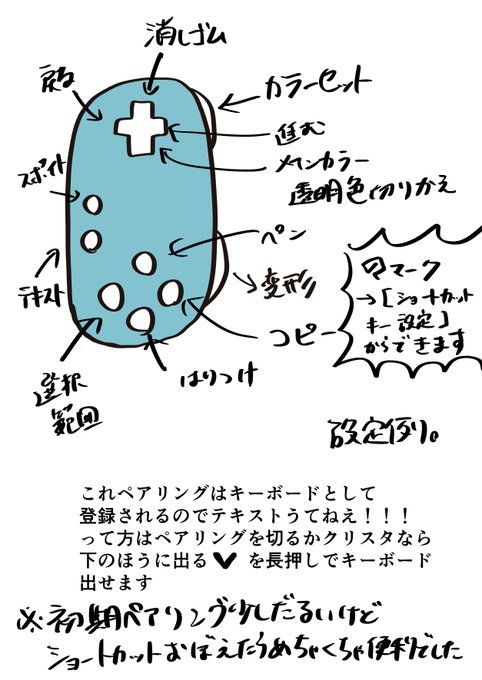 消しゴム
戻る
カラーセット
進む
スポイト
メインカラー
透明色切りかえ
ペン
テキスト
変形
コピー
マーク
→[ショートカット
キー設定]
からできます
はりつけ
選択
範囲
設定例り。
これペアリングはキーボードとして
登録されるのでテキストうてねえ！！！
って方はペアリングを切るかクリスタなら
下のほうに出る を長押しでキーボード
出せます
※初期ペアリング少しだるいけど
ショートカットおぼえたらめちゃくちゃ便利でした